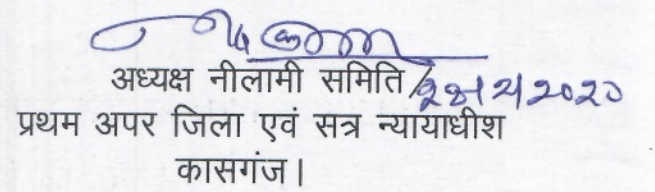 अध्यक्ष नीलामी समिति/
प्रथम अपर जिला एवं सत्र न्यायाधीश
कासगंज।